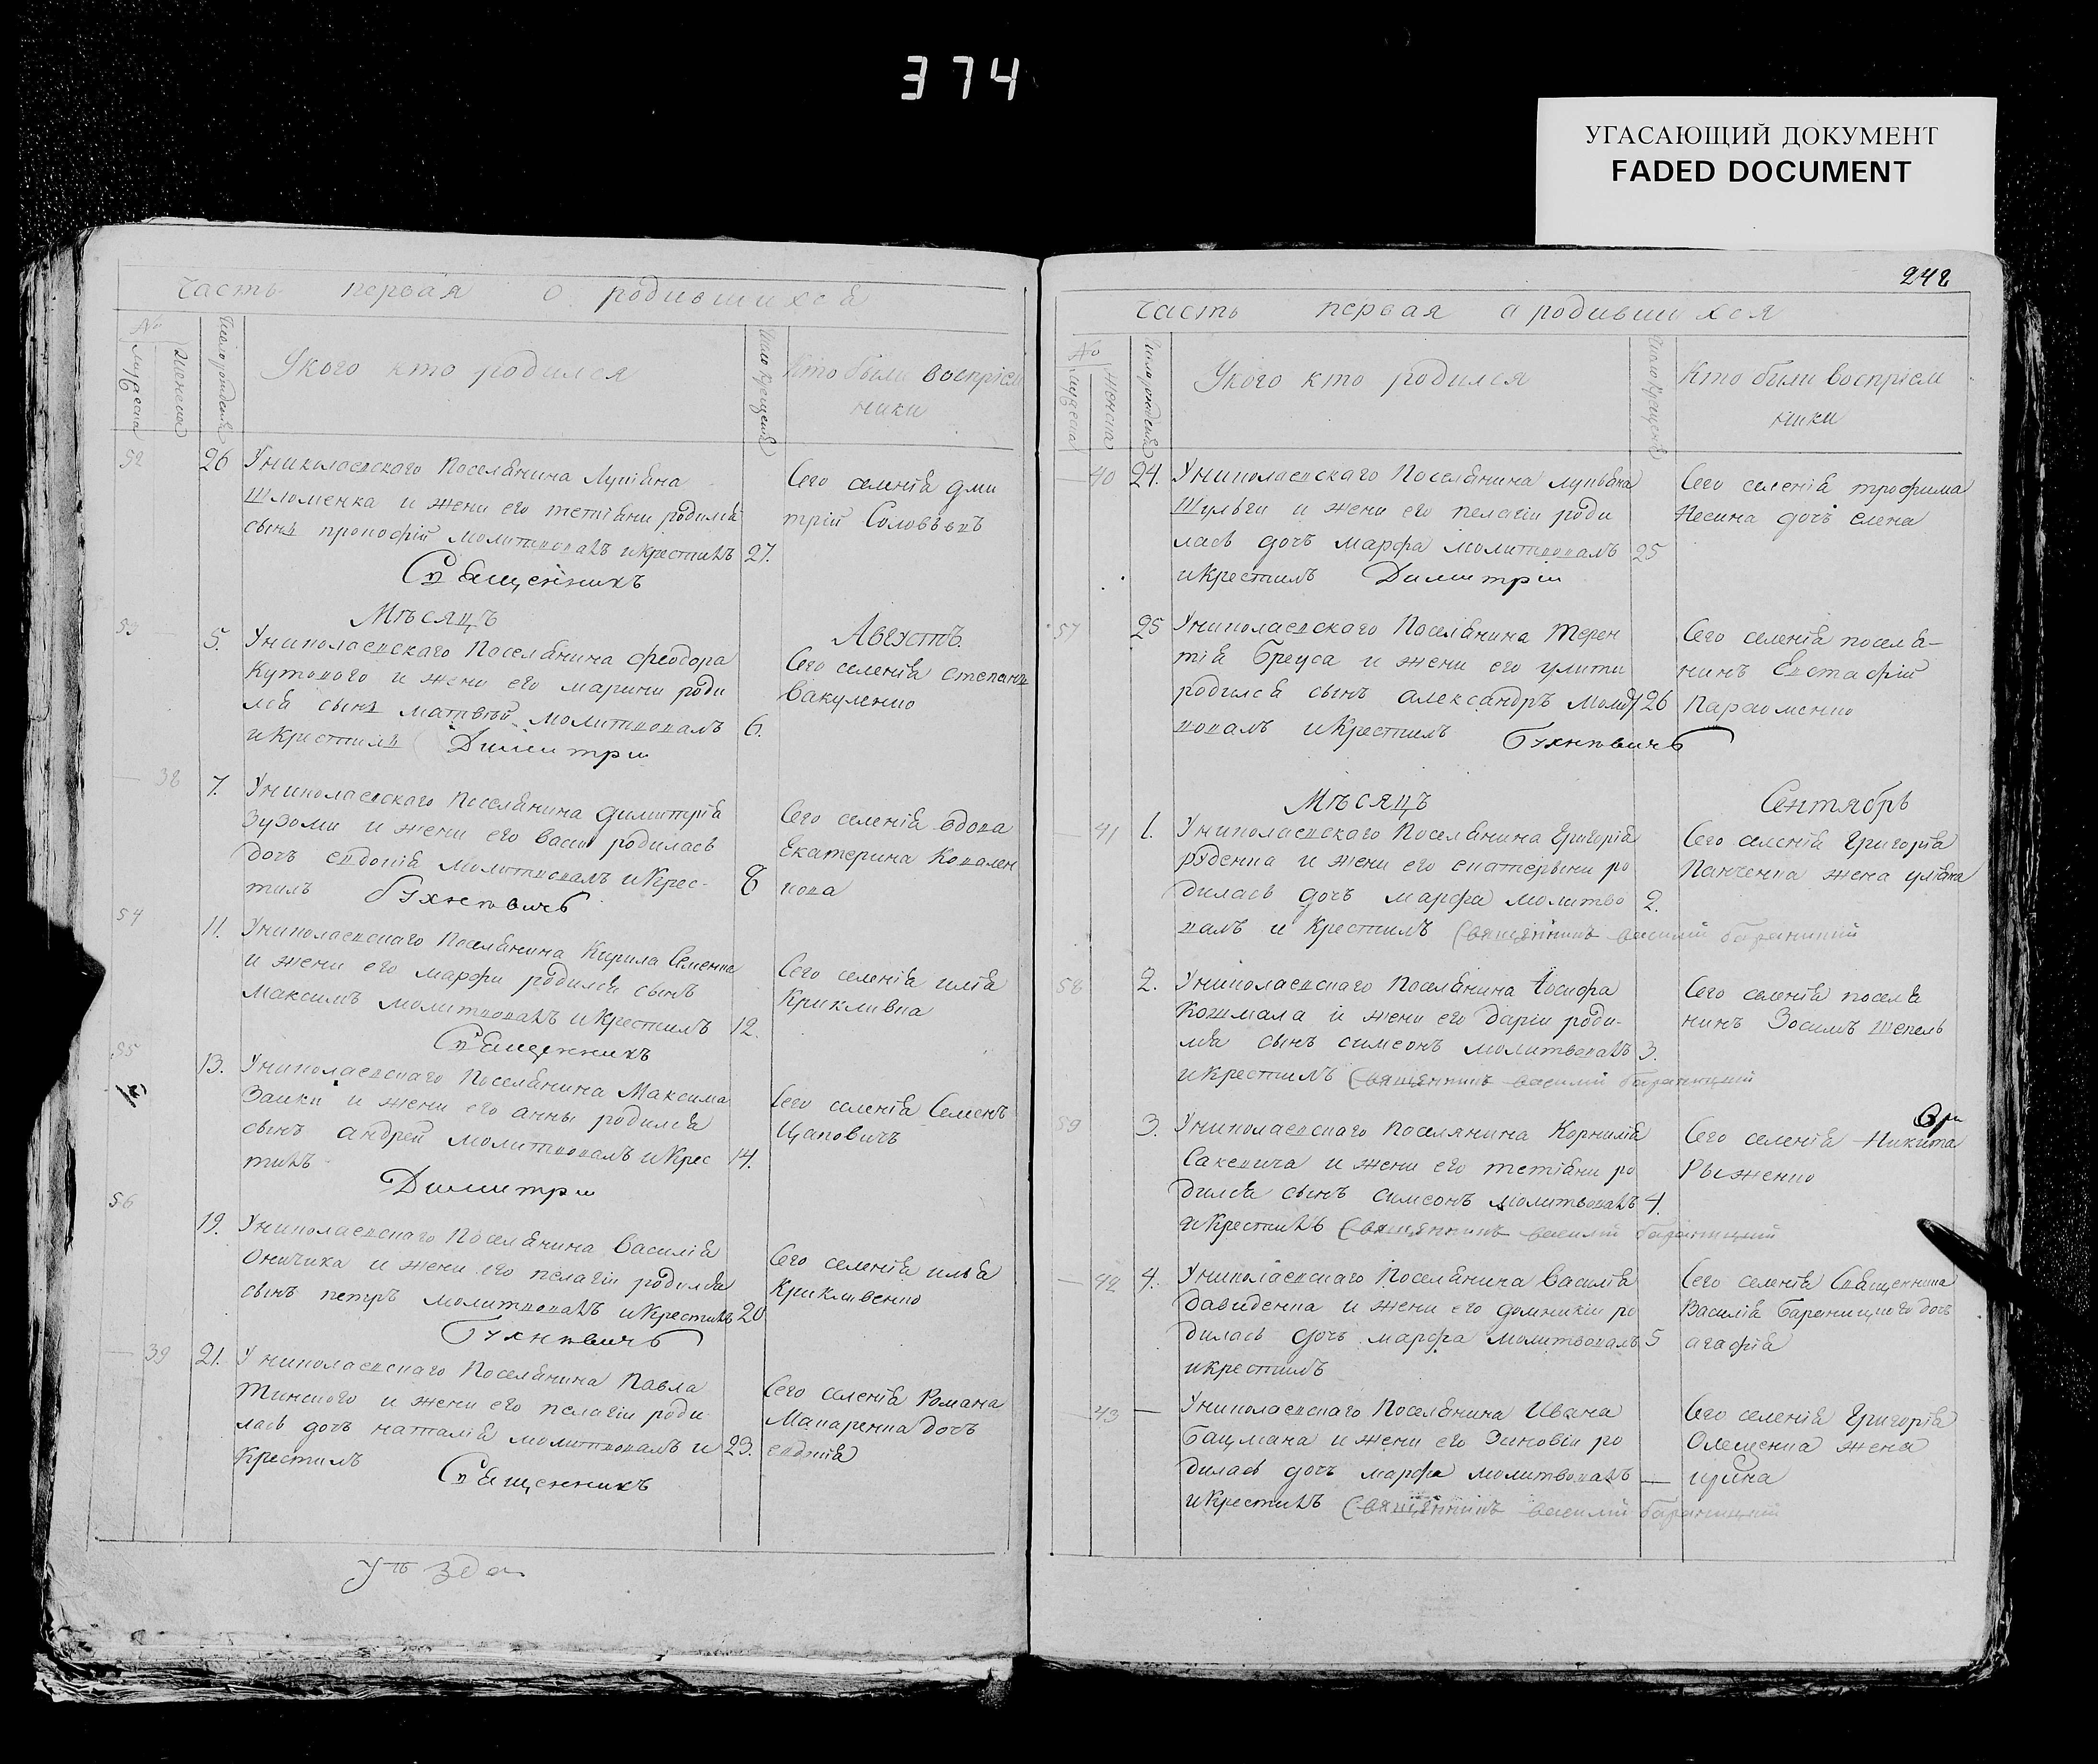 374
УГАСАЮЩИЙ ДОКУМЕНТ
FADED DOCUMENT
часть первая о родившихся
№
мужеска
женска
Число рождения
Укого кто родился
Число крещения
Кто были восприем
ники
52
26
Униколаевскаго Поселянина Лукіяна
Шломенка и жени его тетіяни родился
сынъ прокофій молитвовалъ икрестилъ
27.
Священникъ
Сего селенія дми
трій Соловьевъ
Мѣсяцъ
Августъ.
53
5.
Униколаевскаго Поселянина феодора
Кутового и жени его марини роди
лся сынъ матвѣй молитвовалъ
6.
икрестилъ Димитри
Сего селенія степанъ
Вакуленко
38
7.
Униколаевскаго Поселянина димитрія
Зузоми и жени его васи родилась
дочъ евдокія молитвовалъ икрес-
8
тилъ
Сего селенія вдова
Екатерина Ковален
кова
54
11.
Униколаевскаго Поселянина Кирила Семенка
и жени его марфи родился сынъ
максимъ молитвовалъ икрестилъ
12.
Священникъ
Сего селенія илія
Крикливка
55
13.
Униколаевскаго Поселянина Максима
Заики и жени его анны родился
сынъ андрей молитвовалъ икрес
14.
тилъ
Димитри
Сего селенія Семенъ
Цаповичъ
56
19.
Униколаевскаго Поселянина Василія
Оничика и жени его пелагіи родился
сынъ петръ молитвовалъ икрестилъ
20
Сего селенія илья
Крикливенко
39
21.
Униколаевскаго Поселянина Павла
Тинского и жени его пелагіи роди
лась дочъ наталія молитвовалъ и
23.
крестилъ Священникъ
Сего селенія Романа
Макаренка дочъ
евдокія
Уѣзда
242
часть первая о родившихся
№
мужеска
женска
Число рождения
Укого кто родился
Число крещения
Кто были восприем
ники
40
24.
Униколаевскаго Поселянина лукьяна
Шульги и жени его пелагіи роди
лась дочъ марфа молитвовалъ
25
икрестилъ Димитрии
Сего селенія трофима
Несина дочъ елена
57
25
Униколаевскаго Поселянина терен
тія Бреуса и жени его улити
родился сынъ александръ молит
26
вовалъ икрестилъ
Сего селенія поселя-
нинъ Евстафій
Пархоменко
Мѣсяцъ
Сентябрь
41
1.
Униколаевскаго Поселянина Григорія
руденка и жени его екатерыни ро
дилась дочъ марфа молитво
2.
валъ и крестилъ Священникъ василій бараницкий
Сего селенія Григорія
Панченка жена уліяна
58
2.
Униколаевскаго Поселянина Іосифа
Кошмала и жени его даріи роди-
лся сынъ симеонъ молитвовалъ
3.
икрестилъ Священникъ василий бараницкий
Сего селенія поселя
нинъ Зосимъ Шепель
59
3.
Униколаевскаго Поселянина Корнилія
Сакевича и жени его тетіяни ро
дился сынъ симеонъ молитвовалъ
4.
икрестилъ Священникъ василий бараницкий
Сего селенія Никита
Рыженко
42
4.
Униколаевскаго Поселянина Василія
Давиденка и жени его домникіи ро
дилась дочъ марфа молитвовалъ
5
икрестилъ
Сего селенія Священника
Василія Бараницкого дочъ
агафія
43
—
Униколаевскаго Поселянина Ивана
Бацмана и жени его Зиновіи ро
дилась дочъ марфа молитвовалъ
—
икрестилъ Священникъ василий бараницкий
Сего селенія Григорія
Олешенка жена
ирина